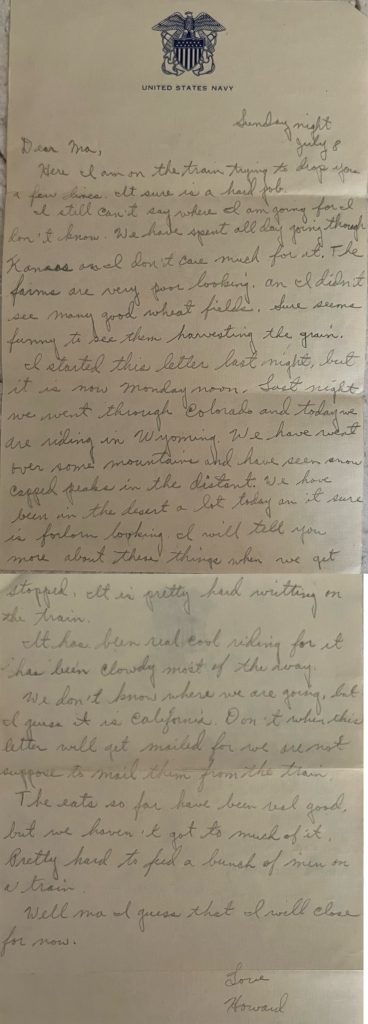 UNITED STATES NAVY
Sunday night
July 8
Dear Ma,
Here I am on the train trying to drop you
a few lines. It sure is a hard job.
I still can't say where I am going for I
don't know. We have spent all day going though
Kansas an I don't care much for it. The
farms are very poor looking, an I didn't
see many good wheat fields. Sure seems
funny to see them harvesting the grain.
I started this letter last night, but
it is now Monday noon. Last night
we went through Colorado and today we
are riding in Wyoming. We have went
over some mountains and have seen snow
capped peaks in the distant. We have
been in the desert a lot today an it sure
is forlorn looking. I will tell you
more about these things when we get
stopped. It is pretty hard writting on
the train.
It has been real cool riding for it
has been clowdy most of the way.
We don't know where we are going, but
I guess it is California. Don't when this
letter will get mailed for we are not
suppose to mail them from the train.
The eats so far have been real good,
but we haven't got to much of it.
Pretty hard to feed a bunch of men on
a train.
Well ma I guess that I will close
for now.
Love
Howard